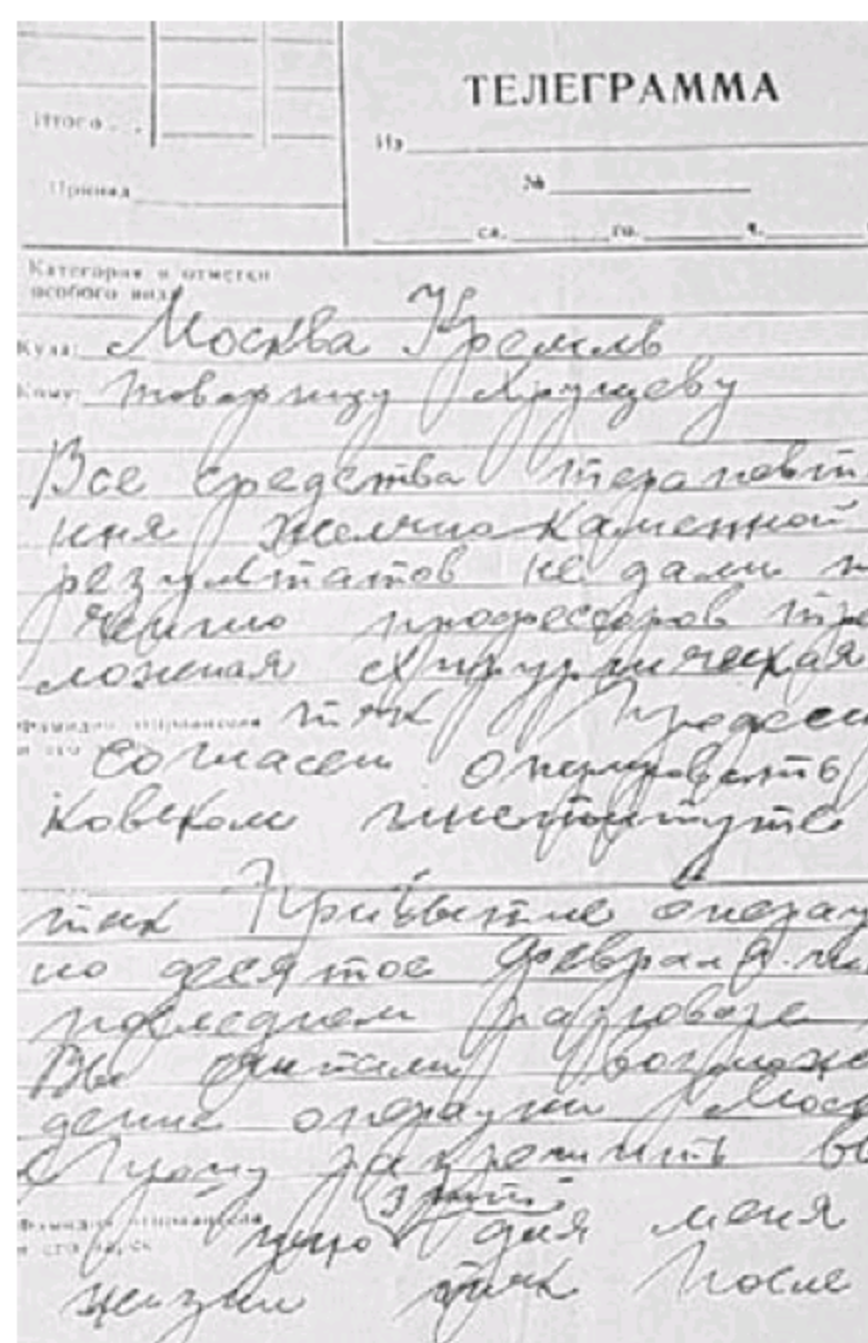 ТЕЛЕГРАММА
Итого . .
Из
Принял
№
сл. го. ч.
Категория и отметки
особого вида
Куда: Москва Кремль
Кому: товарищу Хрущеву
Все средства терапевти
ния желчнокаменной
результатов не дали
чению профессоров тре
ложная хирургическая
Фамилия отправителя тчк
и его
согласен оперировать
ковском институте
тчк Прибытие операц
но десятое февраля
последнем разговоре
Вы считали возможн
дение операции Моск
Прошу разрешить
Фамилия отправителя
и его адрес для меня
жизни тчк После